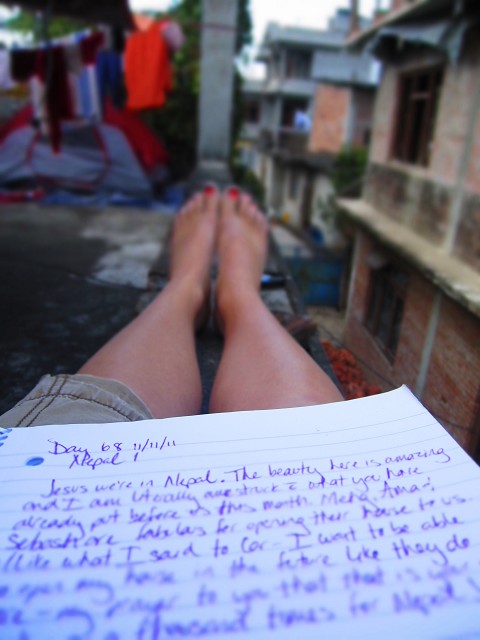 Day 68 11/11/11
Nepal!
Jesus we're in Nepal. The beauty here is amazing
and I am literally awestruck what you have
already put before us this month. Ama
are fabulous for opening their house to us.
Like what I said to I want to be able
open my house in the future like they do
my prayer to you that that is your
thousand times for Nepal!